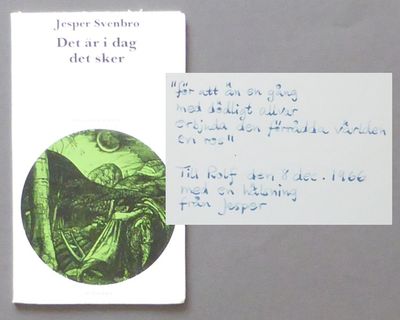 Jesper Svenbro
Det är i dag
det sker
"för att än en gång
med dödligt allvar
erbjuda den förrådda världen
en ros"
Till Rolf den 8 dec. 1966
med en hälsning
från Jesper